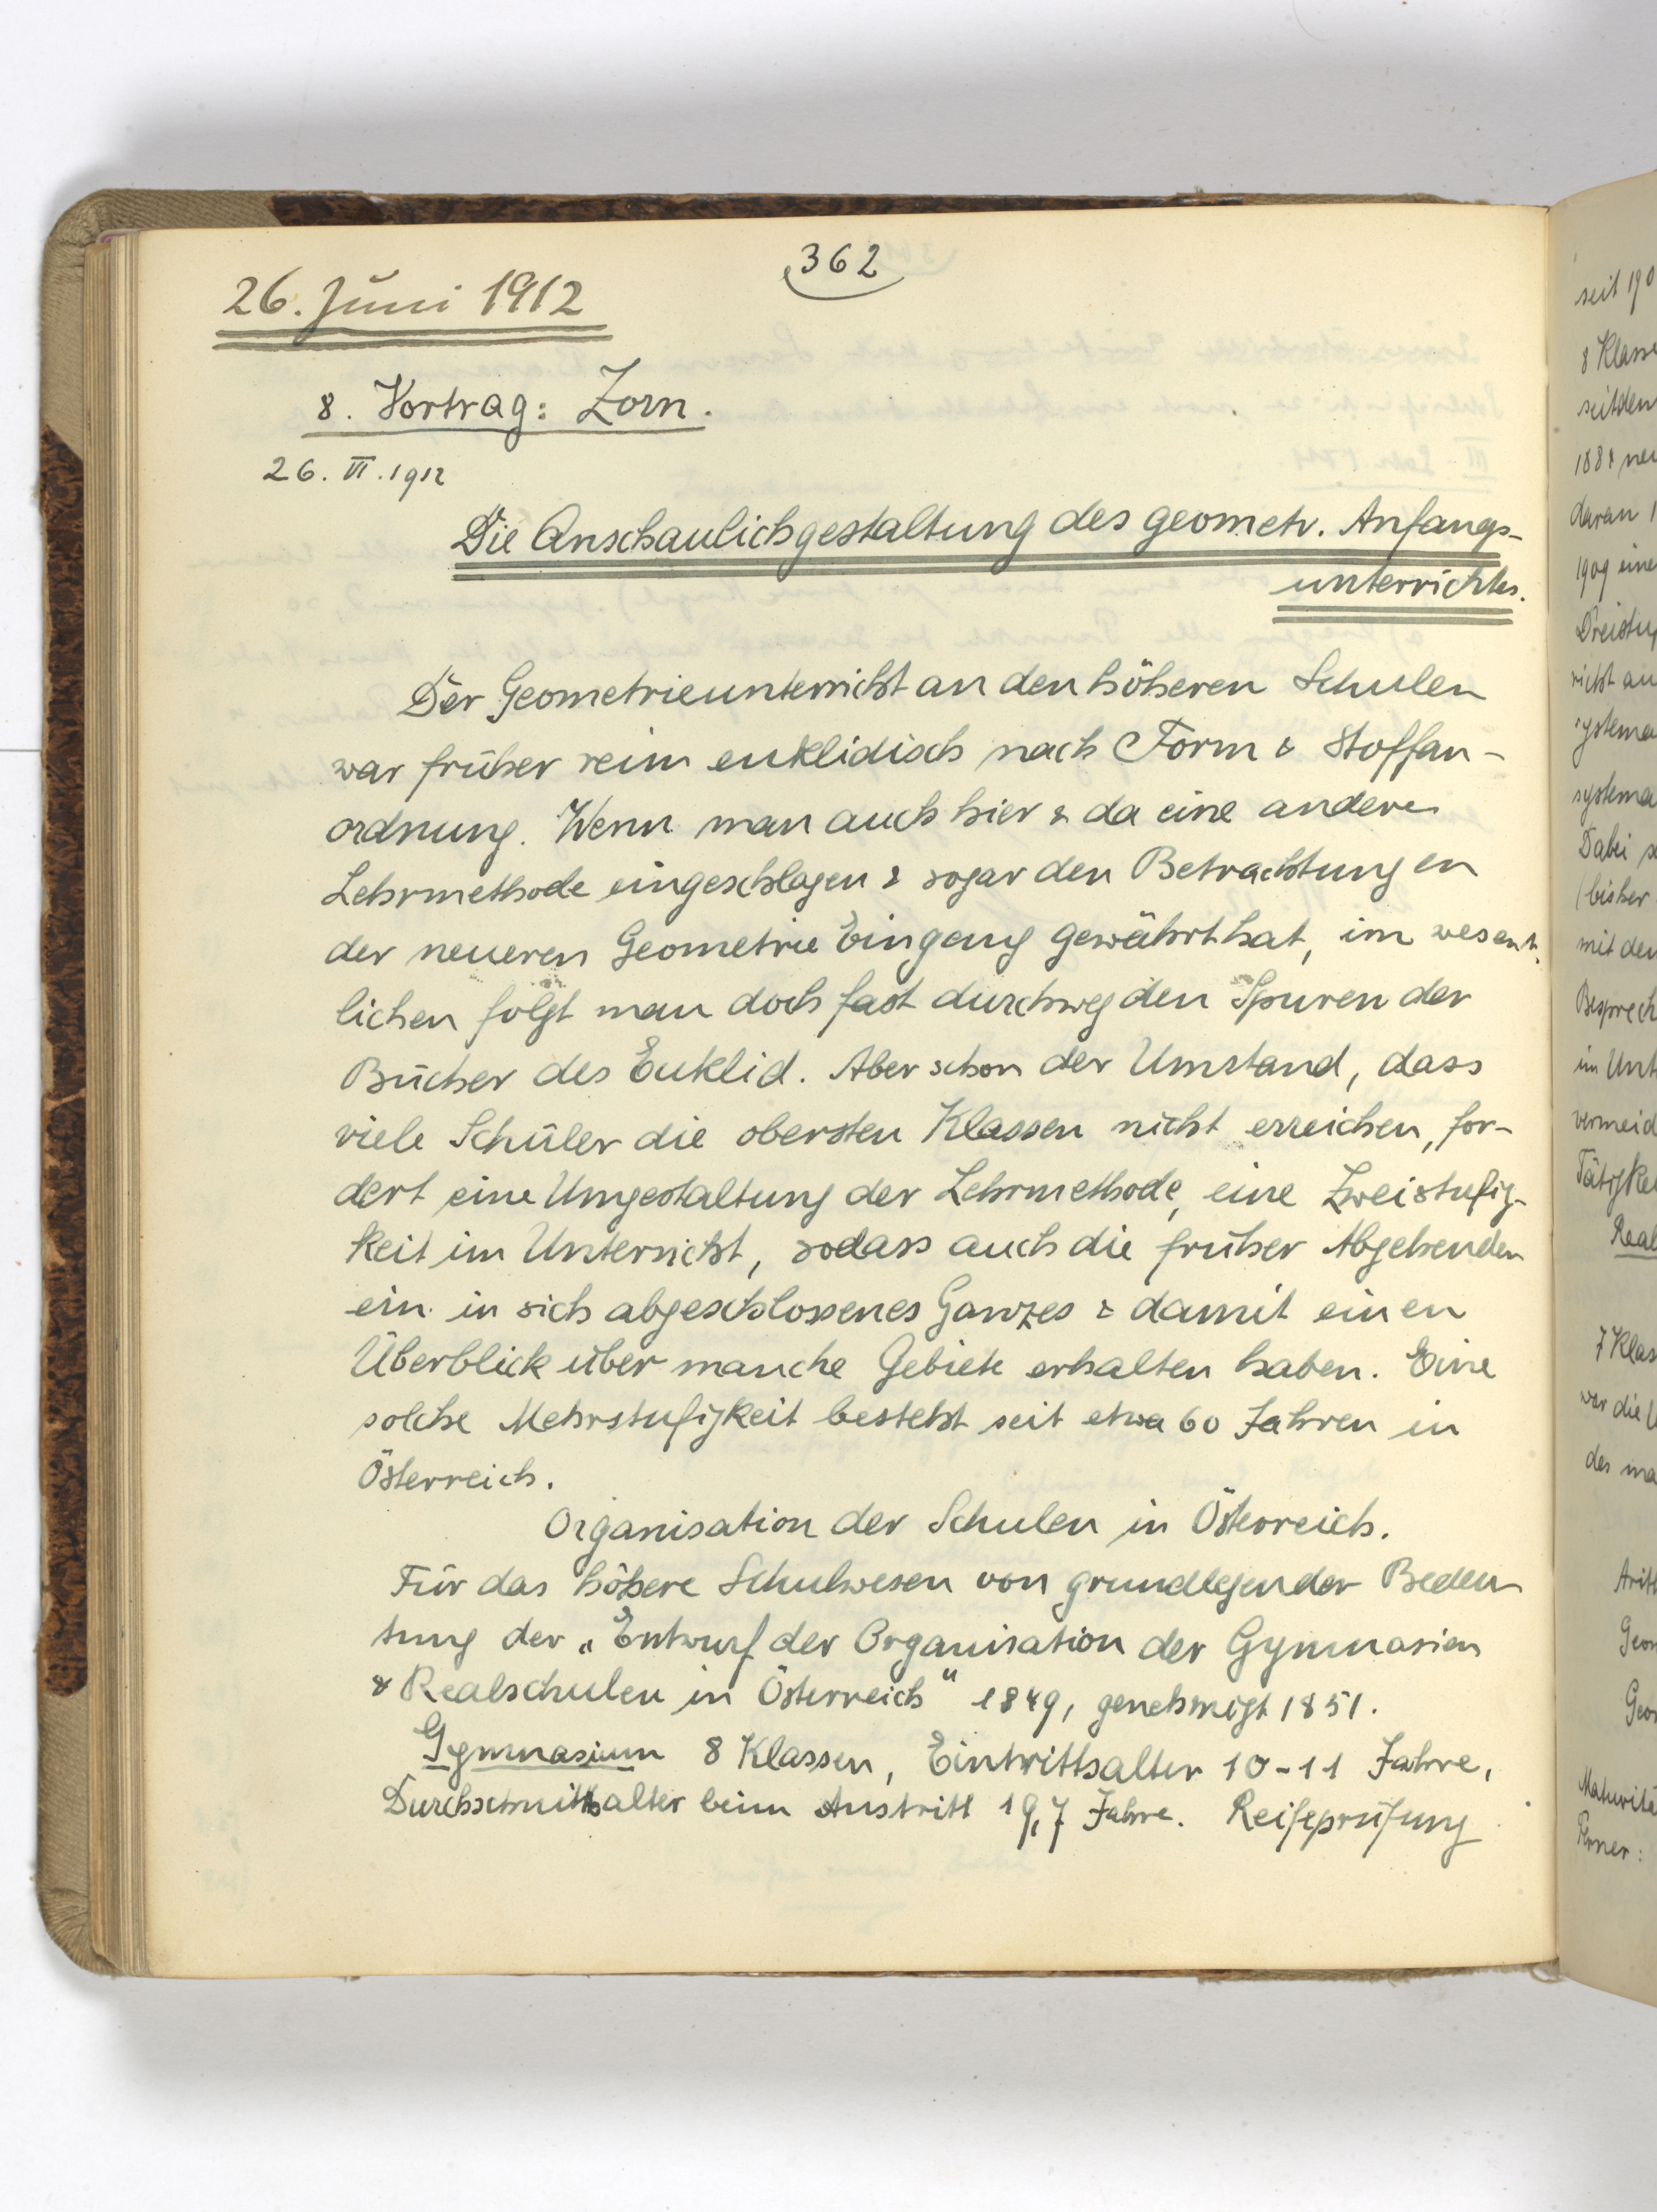 362
26. Juni 1912
8. Vortrag: Zorn.
26. VI. 1912
Die Anschaulichgestaltung des geometr. Anfangs-
unterrichtes.
Der Geometrieunterricht an den höheren Schulen
war früher rein euklidisch nach Form & Stoffan-
ordnung. Wenn man auch hier & da eine andere
Lehrmethode eingeschlagen & sogar den Betrachtungen
der neueren Geometrie Eingang gewährt hat, im wesent-
lichen folgt man doch fast durchweg den Spuren der
Bücher des Euklid. Aber schon der Umstand, dass
viele Schüler die obersten Klassen nicht erreichen, for-
dert eine Umgestaltung der Lehrmethode, eine Zweistufig-
keit im Unterricht, sodass auch die früher Abgehenden
ein in sich abgeschlossenes Ganzes & damit einen
Überblick über manche Gebiete erhalten haben. Eine
solche Mehrstufigkeit besteht seit etwa 60 Jahren in
Österreich.
Organisation der Schulen in Österreich.
Für das höhere Schulwesen von grundlegender Bedeu-
tung der „Entwurf der Organisation der Gymnasien
& Realschulen in Österreich" 1849, genehmigt 1851.
Gymnasium 8 Klassen, Eintrittsalter 10-11 Jahre,
Durchschnittsalter beim Austritt 19,7 Jahre. Reifeprüfung
seit 190
8 Klasse
seitdem
daran
1909 eine
Dreistu
richt an
systema
systema
Dabei
(bisher
mit den
Besprech
im Unt
vermeid
Tätigkei
Real
7 Klas
war die
des ma
Arith
Geom
Geom
Maturitä
Ferner: